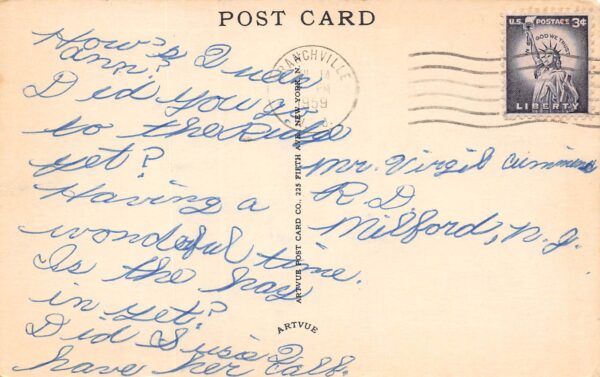 POST CARD
How's Queen
Ann?
Did you go
to the Ridge
yet?
Having a
wonderful time.
Is the hay
in yet?
Did Susie Q
have her calf.
BRANCHVILLE
1959
U.S. POSTAGE 3¢
IN GOD WE TRUST
LIBERTY
Mr. Virgil Cummins
R.D.
Milford, N.J.
ARTVUE POST CARD CO., 225 FIFTH AVE., NEW YORK, N. Y.
ARTVUE